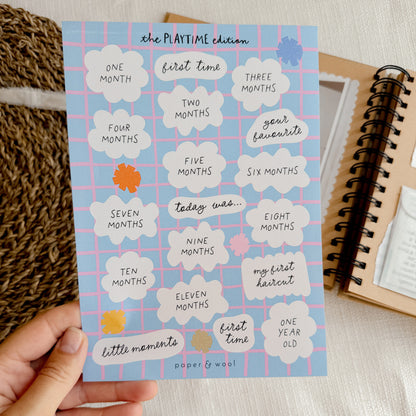 the PLAYTIME edition
ONE
MONTH
first time
THREE
MONTHS
TWO
MONTHS
FOUR
MONTHS
your
favourite
FIVE
MONTHS
SIX MONTHS
SEVEN
MONTHS
today was...
EIGHT
MONTHS
NINE
MONTHS
TEN
MONTHS
my first
haircut
ELEVEN
MONTHS
little moments
first
time
ONE
YEAR
OLD
paper & wool